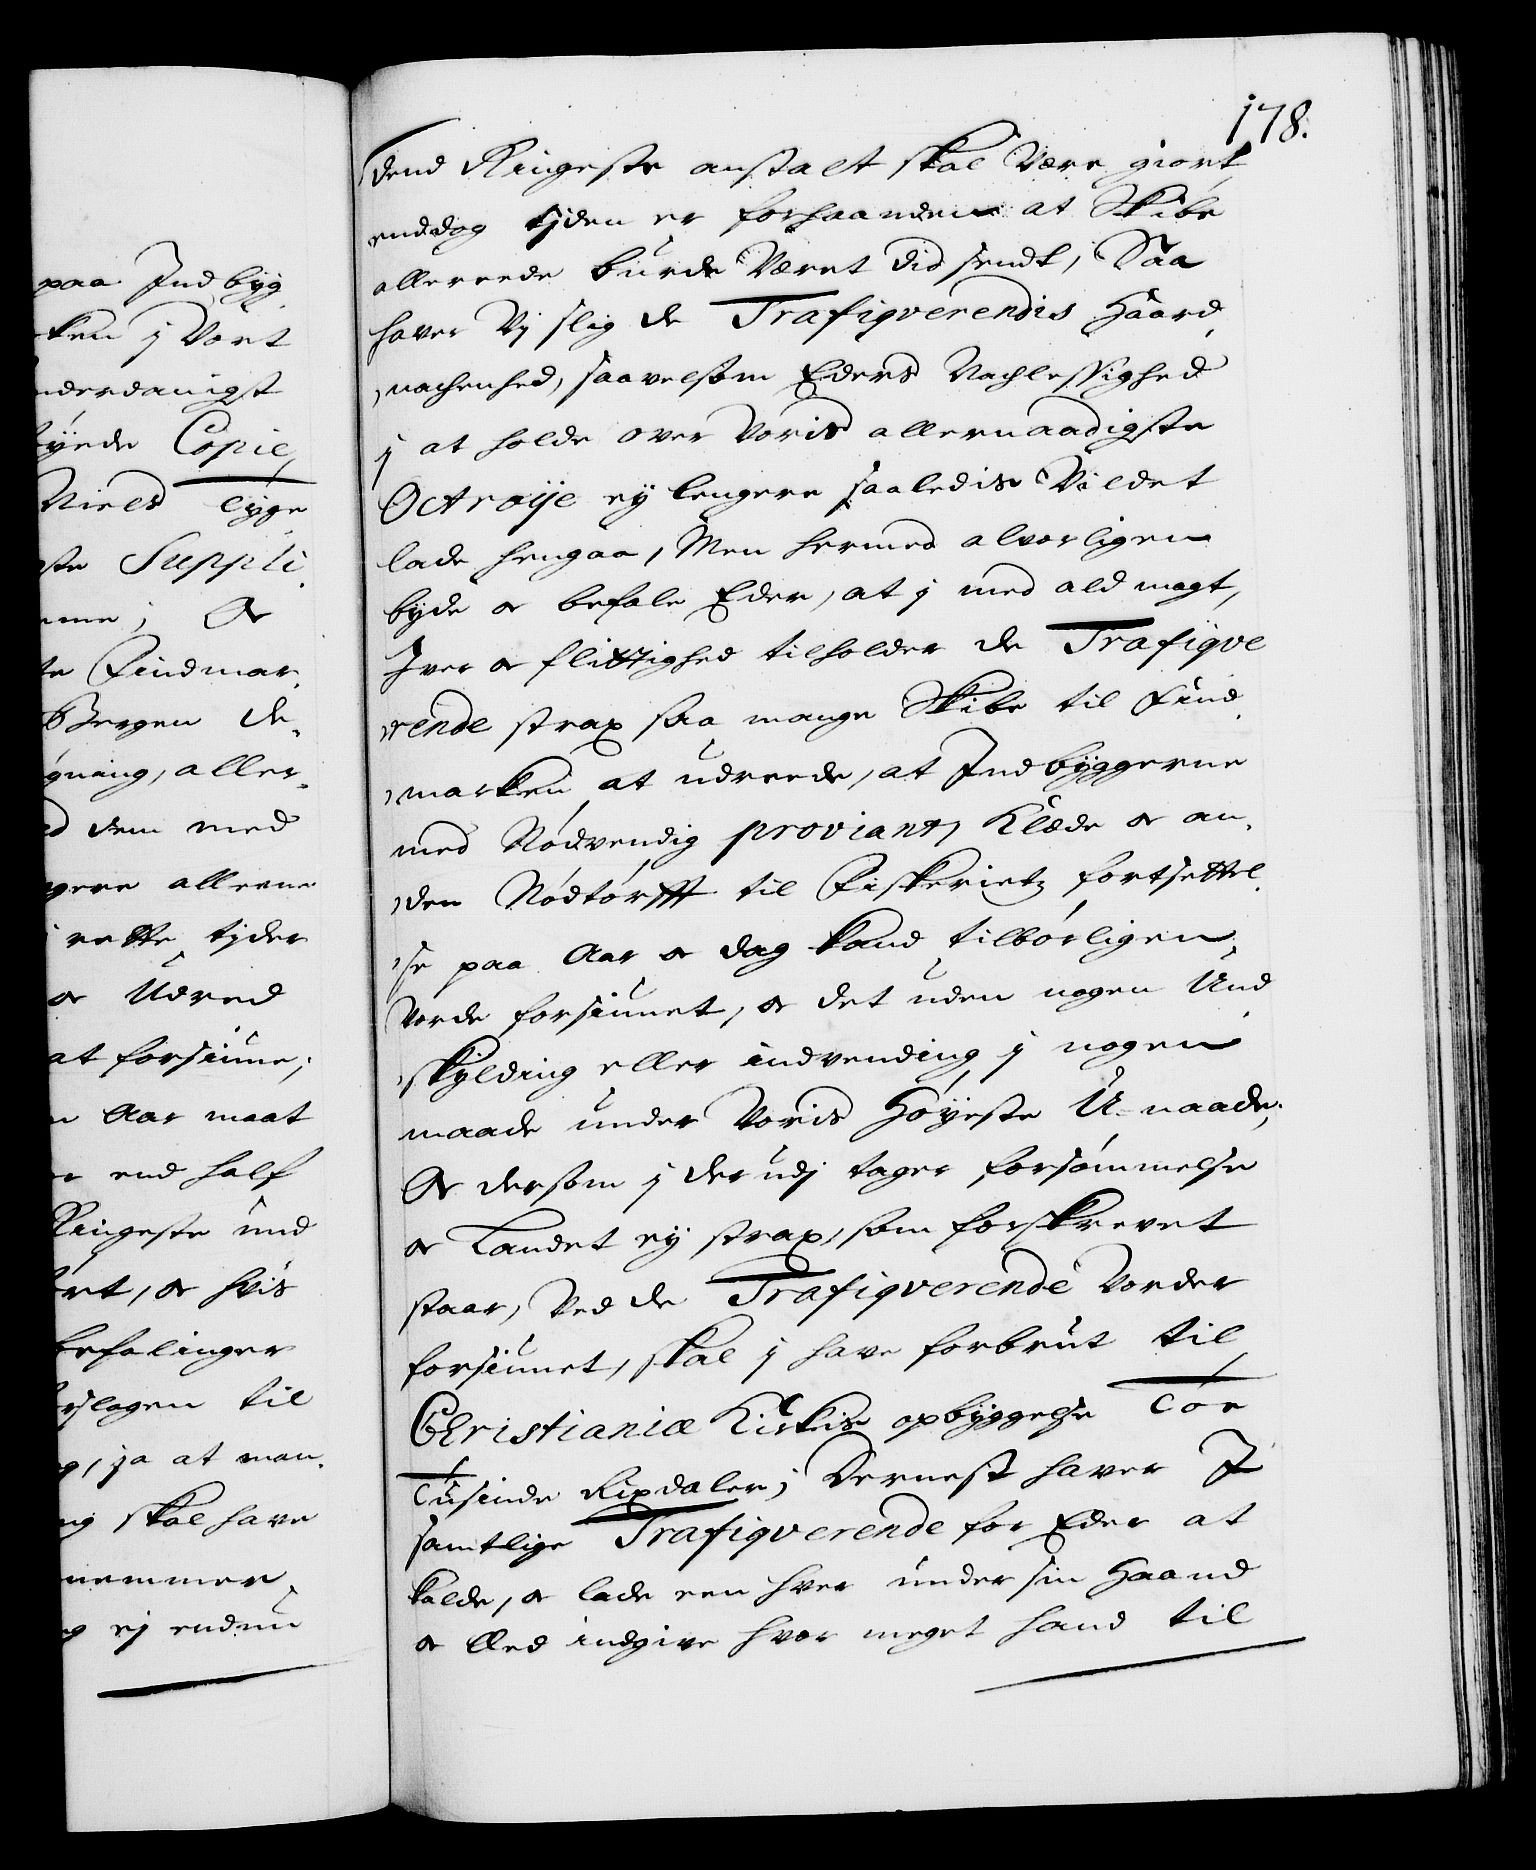 paa Indbyg
ken j Vort
nderdanigst
Copie,
Niels lyge
ste Suppli
mme; Or
te Findmar
Bergen de
gning, aller
d dem med
gere allerne
rette tyder
or Udred
at forsiune;
n Aar maat
r end half
Ringeste und
ret, or hvis
befalinger
slagen til
g, ja at man
ng skal have
nemmer
g ej endnu
178.
dend Ringeste anstalt skal Være giort
enddog tyden er forhaanden at Skibe
allereede burde Været did sendt, Saa
haver Vj slig de Trafiqverendis Haard
nachenhed, saavelsom Eders Nachlessighed
j at holde over Voris allernaadigste
Octroije ey lengere saaledis Vildet
lade hengaa, Men hermed alvorligen
byde or befale Eder, at j med ald magt,
Iver or flittighed tilholder de Trafiqve
rende strax saa mange Skibe til Find
marken at udreede, at Indbyggerne
med Nødvendig proviant, Klæde or an
den Nødtørfft til Fiskerietz fortsettel
se paa Aar or dag kand tilbørligen
Vorde forsiunet, or det uden nogen Und
skylding eller indvending j nogen
maade under Voris Høyeste U-naade;
Or dersom j derudj tager forsømmelse
or Landet ey strax, som forskrevet
staar, Ved de Trafiqverende Vorder
forsiunet, skal j have forbrut til
Christianiæ Kirkis opbyggelse Toe
Tusinde Rixdaler; Dernest haver I
samtlige Trafiqverende for Eder at
kalde, or lade een hver under sin Haand
or Eed indgive hvor meget hand til